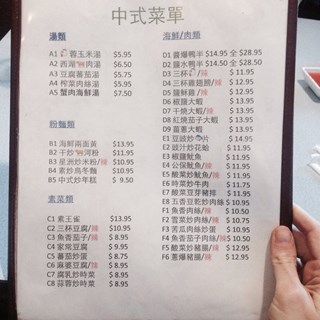 中式菜單
湯類
A1 蓉玉米湯 $5.95
A2 西湖牛肉湯 $5.95
A3 豆腐蕃茄湯 $5.75
A4 榨菜肉絲湯 $5.75
A5 蟹肉海鮮湯 $7.50
粉麵類
B1 海鮮兩面黃 $13.95
B2 干炒牛河粉 $11.95
B3 星洲炒米粉/辣 $10.95
B4 素炒烏冬麵 $10.95
B5 中式炒年糕 $ 9.50
素菜類
C1 素王雀 $13.95
C2 三杯豆腐/辣 $10.95
C3 魚香茄子/辣 $ 8.95
C4 家常豆腐 $ 9.95
C5 蕃茄炒蛋 $ 8.75
C6 麻婆豆腐/辣 $ 8.95
C7 腐乳炒時菜 $ 8.95
C8 蒜蓉炒時菜 $ 8.95
海鮮/肉類
D1 醬爆鴨半 $14.95 全 $28.50
D2 鹽水鴨半 $14.95 全 $28.50
D3 三杯 /辣 $ 11.95
D4 三杯雞翅膀/辣 $ 11.95
D5 鹽酥雞 /辣 $ 11.95
D6 椒鹽大蝦 $ 14.95
D7 干燒大蝦/辣 $ 14.95
D8 紅燒茄子大蝦 $ 14.95
D9 薑蔥大蝦 $ 14.95
E1 豆豉炒 片 $ 14.75
E2 豉汁炒花蛤 $ 11.95
E3 椒鹽魷魚/辣 $ 11.95
E4 公保魷魚/辣 $ 11.95
E5 酸菜炒魷魚/辣 $ 11.95
E6 時菜炒牛肉 $ 11.75
E7 酸菜豆芽豬排 $ 11.95
E8 五香豆乾炒肉絲 $10.95
F1 魚香肉絲/辣 $ 10.50
F2 雪菜炒肉絲/辣 $ 10.95
F3 苦瓜肉絲炒蛋 $ 10.95
F4 魚香茄子肉絲/辣 $10.50
F5 酸菜炒豬腸/辣 $ 12.95
F6 蔥爆豬腸/辣 $ 12.95